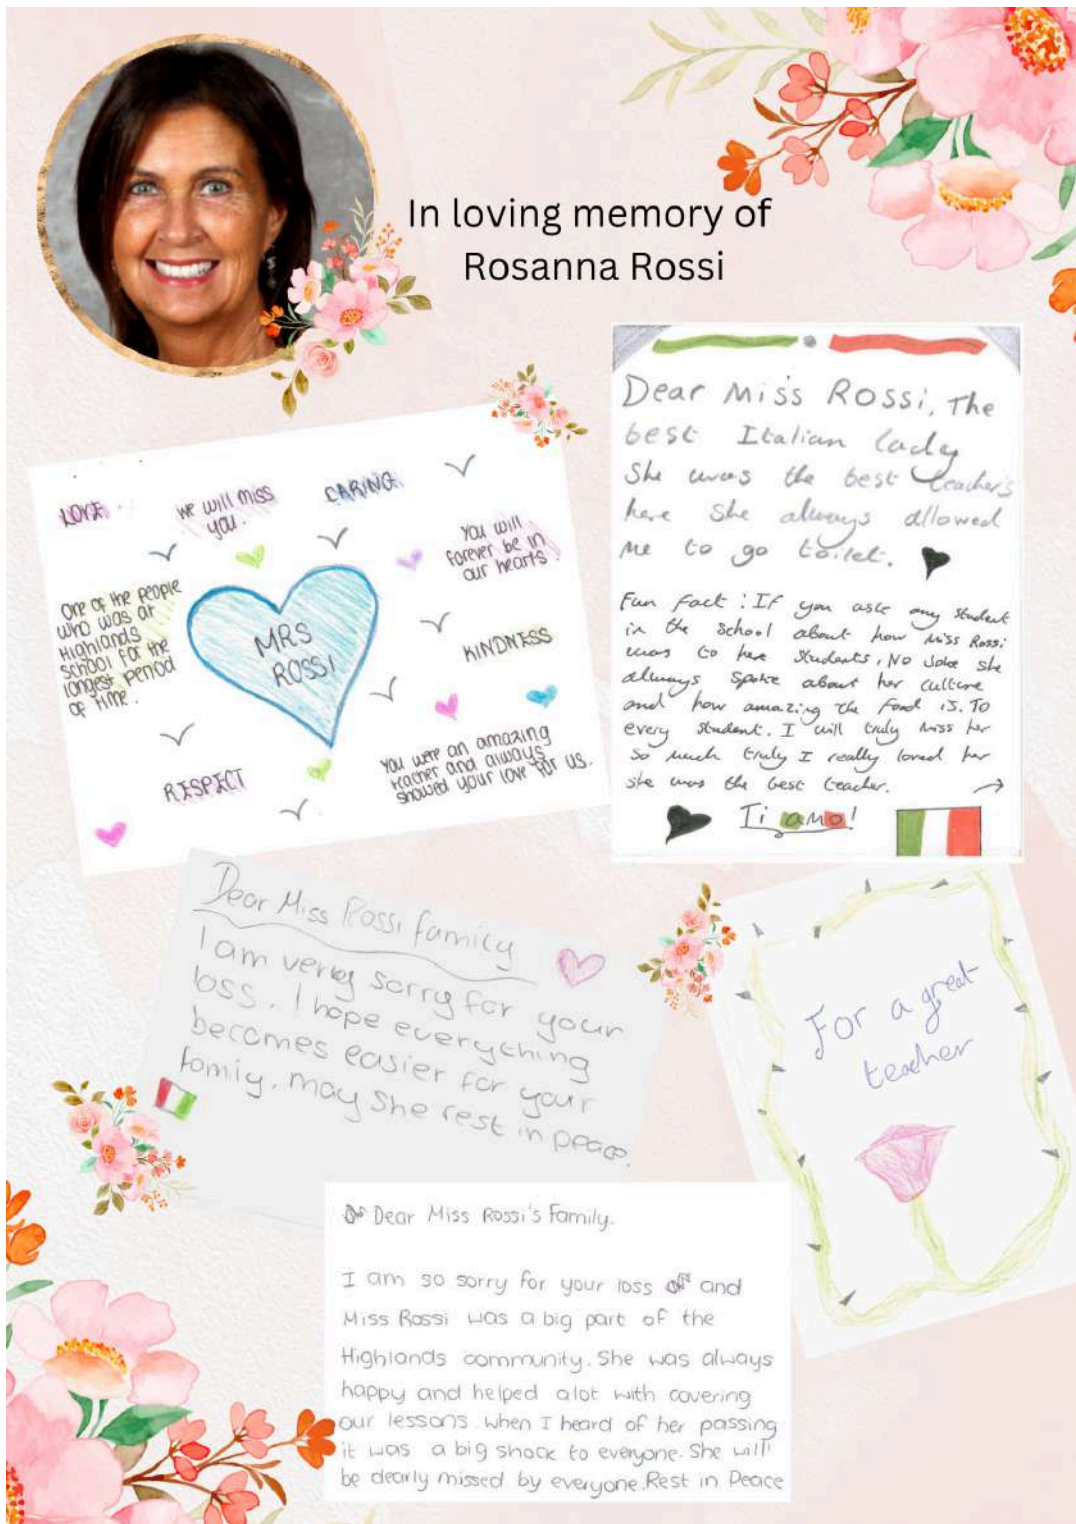 In loving memory of
Rosanna Rossi
LOVE.
we will miss
you.
CARING.
You will
forever be in
our hearts.
One of the people
who was at
Highlands
School for the
longest period
of time.
MRS
ROSSI
KINDNESS
RESPECT
You were an amazing
teacher and always
showed your love for us.
Dear Miss Rossi, The
best Italian lady
She was the best teachers
here she always allowed
me to go toilet.
Fun fact: If you ask any student
in the school about how Miss Rossi
was to her students, No joke she
always spoke about her culture
and how amazing the food is. To
every student. I will truly miss her
so much truly I really loved her
she was the best teacher.
Ti amo!
Dear Miss Rossi family
I am very sorry for your
loss. I hope everything
becomes easier for your
famiy. may she rest in peace.
For a great
teacher
Dear Miss Rossi's Family.
I am so sorry for your loss and
Miss Rossi was a big part of the
Highlands community. She was always
happy and helped alot with covering
our lessons. When I heard of her passing
it was a big shock to everyone. She will
be dearly missed by everyone. Rest in Peace